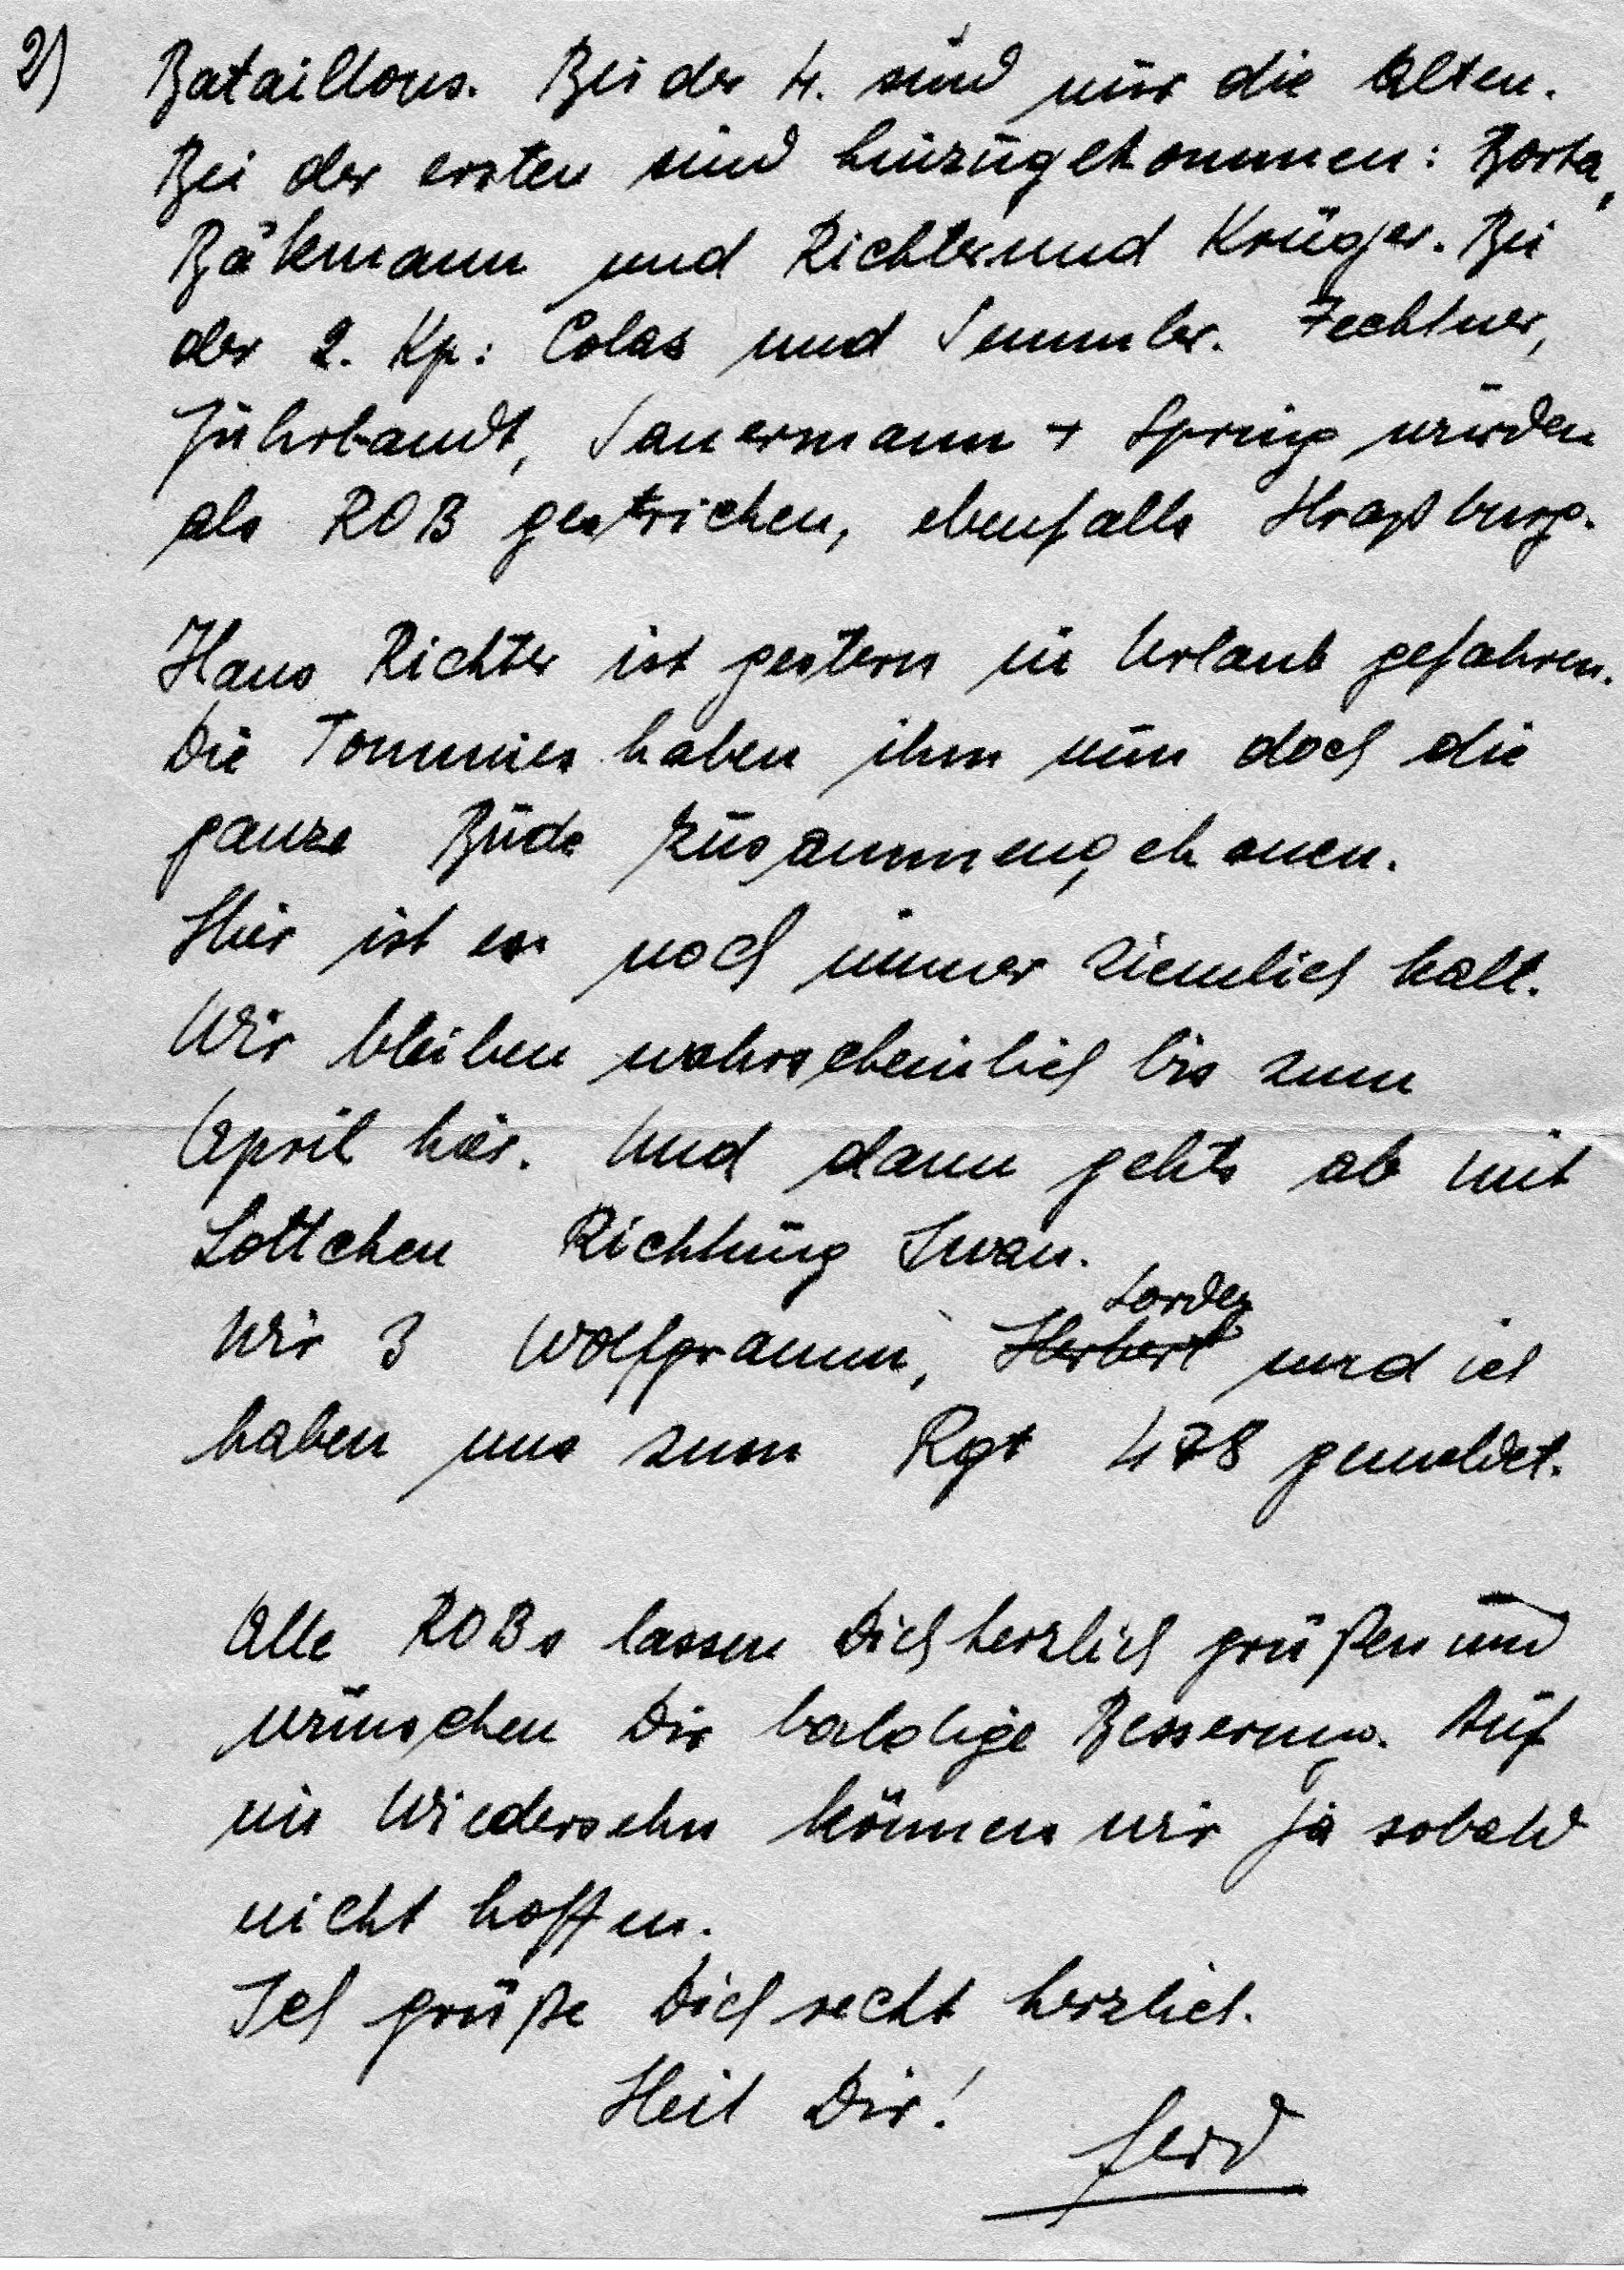 2) Bataillons. Bei der 4. sind nur die Alten.
Bei der ersten sind hinzugekommen: Borta,
Bäkmann und Richter und Krüger. Bei
der 2. Kp: Colas und Semmler. Fechtner,
Führbandt, Sauermann + Spring wurden
als ROB gestrichen, ebenfalls Straßburg.
Hans Richter ist gestern in Urlaub gefahren.
Die Tommies haben ihm nun doch die
ganze Bude zusammengehauen.
Hier ist es noch immer ziemlich kalt.
Wir bleiben wahrscheinlich bis zum
April hier. Und dann gehts ab mit
Lottchen Richtung Iwan.
Lorder
Wir 3 Wolfgramm, Herbert und ich
haben uns zum Rgt 478 gemeldet.
Alle ROBs lassen Dich herzlich grüßen und
wünschen Dir baldige Besserung. Auf
ein Wiedersehn können wir ja sobald
nicht hoffen.
Ich grüße Dich recht herzlich.
Heil Dir!
Gerd